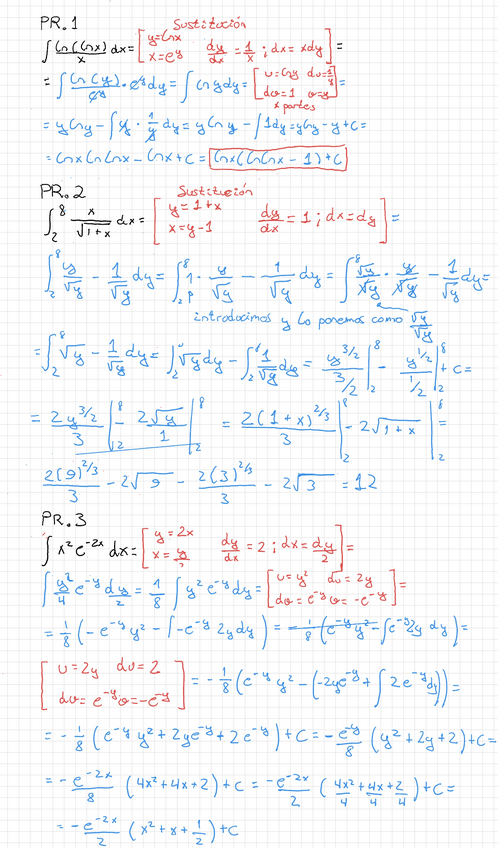 PR.1
Sustitución
∫ Ln(Lnx)/x dx = [ y=Lnx dy/dx = 1/x ; dx = xdy x=e^y ] =
= ∫ Ln(y)/e^y · e^y dy = ∫ Ln y dy = [ u=Lny du=1/y dv=1 v=y ] =
x partes
= yLny - ∫ y · 1/y dy = yLny - ∫ 1dy = yLny - y + C =
= Lnx LnLnx - Lnx + C = Lnx(LnLnx - 1) + C
PR.2
Sustitución
∫₂⁸ x/√(1+x) dx = [ y=1+x x=y-1 dy/dx = 1 ; dx=dy ] =
∫₂⁸ y/√y - 1/√y dy = ∫₂⁸ 1 · y/√y - 1/√y dy = ∫ √y/√y · y/√y - 1/√y dy =
introducimos y lo ponemos como √y/√y
= ∫₂⁸ √y - 1/√y dy = ∫₂⁸ √y dy - ∫₂⁸ 1/√y dy = y^3/2 / 3/2 |₂⁸ - y^1/2 / 1/2 |₂⁸ + C =
= 2y^3/2 / 3 |₂⁸ - 2√y / 1 |₂⁸ = 2(1+x)^2/3 / 3 |₂⁸ - 2√(1+x) |₂⁸ =
2(9)^2/3 / 3 - 2√9 - 2(3)^2/3 / 3 - 2√3 = 12
PR.3
∫ x² e^-2x dx = [ y=2x x=y/2 dy/dx = 2 ; dx = dy/2 ] =
∫ y²/4 e^-y dy/2 = 1/8 ∫ y² e^-y dy = [ u=y² du=2y dv=e^-y v=-e^-y ] =
= 1/8 (-e^-y y² - ∫ -e^-y 2y dy) = -1/8 (e^-y y² - ∫ e^-y 2y dy) =
[ u=2y du=2 dv=e^-y v=-e^-y ] = -1/8 (e^-y y² - (-2ye^-y + ∫ 2e^-y dy)) =
= -1/8 (e^-y y² + 2ye^-y + 2e^-y) + C = -e^-y/8 (y² + 2y + 2) + C =
= -e^-2x/8 (4x² + 4x + 2) + C = -e^-2x/2 (4x²/4 + 4x/4 + 2/4) + C =
= -e^-2x/2 (x² + x + 1/2) + C